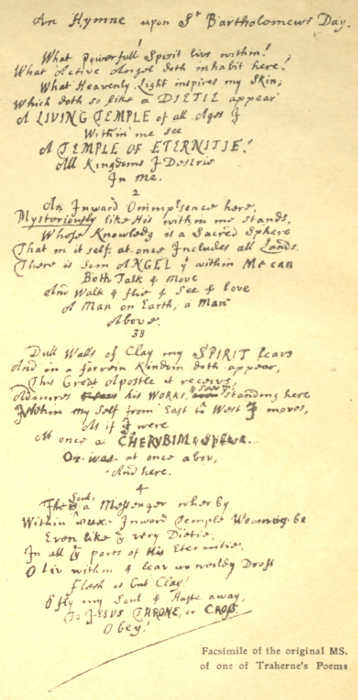 An Hymne upon St Bartholomews Day.
What Powerfull Spirit livs within!
What Active Angel doth inhabit here!
What Heavenly Light inspires my Skin;
Which doth so like a DIETIE appear
A LIVING TEMPLE of all Ages I
Within me see
A TEMPLE OF ETERNITIE!
All Kingdoms I Descrie
In me.
2
An Inward Omnipresence here,
Mysteriously like His within me stands,
Whose Knowledg is a Sacred Sphere
That in it self at once Includes all Lands.
There is som ANGEL yt within Me can
Both Talk & Move
And Walk & flie & See & love
A Man on Earth, a Man
Above.
3
Dull Walls of Clay my SPIRIT leavs
And in a forrein Kindom doth appear,
This Great Apostle it receivs,
Admires his WORKS, & sees him standing here
Within my self from East to West I moves,
As if I were
At once a CHERUBIM & Sphere.
Or was at once abov,
And here.
4
The Soul's a Messenger wherby
Within our Inward Temple We may be
Even like ye very Dietie,
In all ye parts of His Eternitie.
O liv within & leav unweildy Dross
Flesh is but Clay!
O fly my Soul & Haste away,
To JESUS THRONE, or CROSS.
Obey!
Facsimile of the original MS.
of one of Traherne's Poems